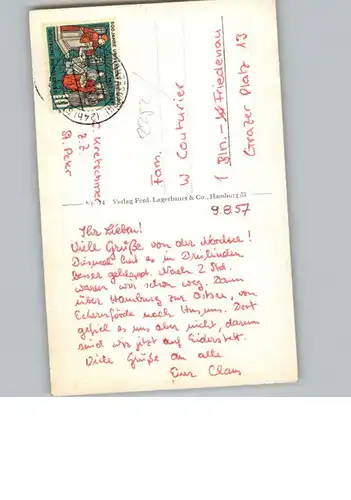 500 JAHRE UNIVERSITÄT
DEUTSCHE BUNDESPOST
10
(24b)
C. Kretschmer
z. Z.
St. Peter
2582
Fam.
W Couturier
1 Bln. - Friedenau
Grazer Platz 13
Nr. 74 Verlag Ferd. Lagerbauer & Co., Hamburg 33
9.8.57
Ihr Lieben!
Viele Grüße von der Nordsee!
Diesmal hat es in Dreilinden
besser geklappt. Nach 2 Std.
waren wir schon weg. Dann
über Hamburg zur Ostsee, von
Eckernförde nach Husum. Dort
gefiel es uns aber nicht, darum
sind wir jetzt auf Eiderstedt.
Viele Grüße an alle
Euer Claus